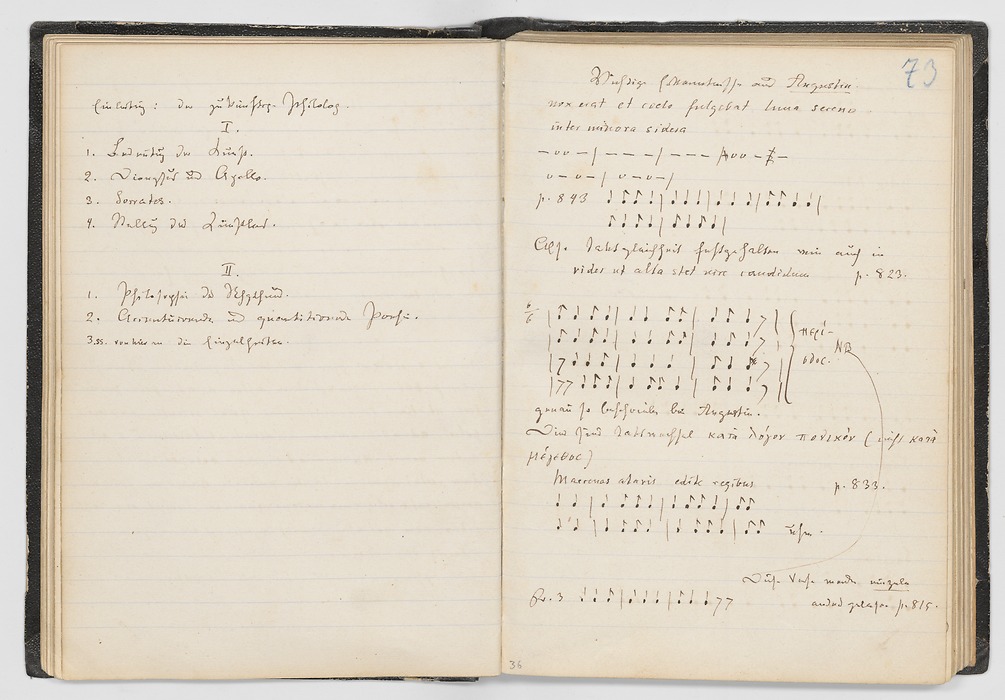 Einleitung: der zukünftige Philolog.
I.
1. Bedeutung der Kunst.
2. Dionysus und Apollo.
3. Socrates.
4. Stellung der
II.
1. Philosophie des Rhythmus.
2. Accentuirende und quantitirende Poesie.
3.ss. die Einzelheiten.
73
Wichtige aus Augustin.
nox erat et coelo fulgebat luna sereno
inter minora sidera
p. 843
Also Taktgleichheit festgehalten wie auch in
vides ut alta stet nive candidum p. 823.
6/6
περί-
οδος. NB
genau so beschrieben bei Augustin.
Dies sind Taktwechsel κατὰ λόγον ποδικόν (nicht κατὰ
μέγεθος)
Maecenas atavis edite regibus p. 833.
usw.
Diese Verse werden
anders gelesen p. 815.
3
36